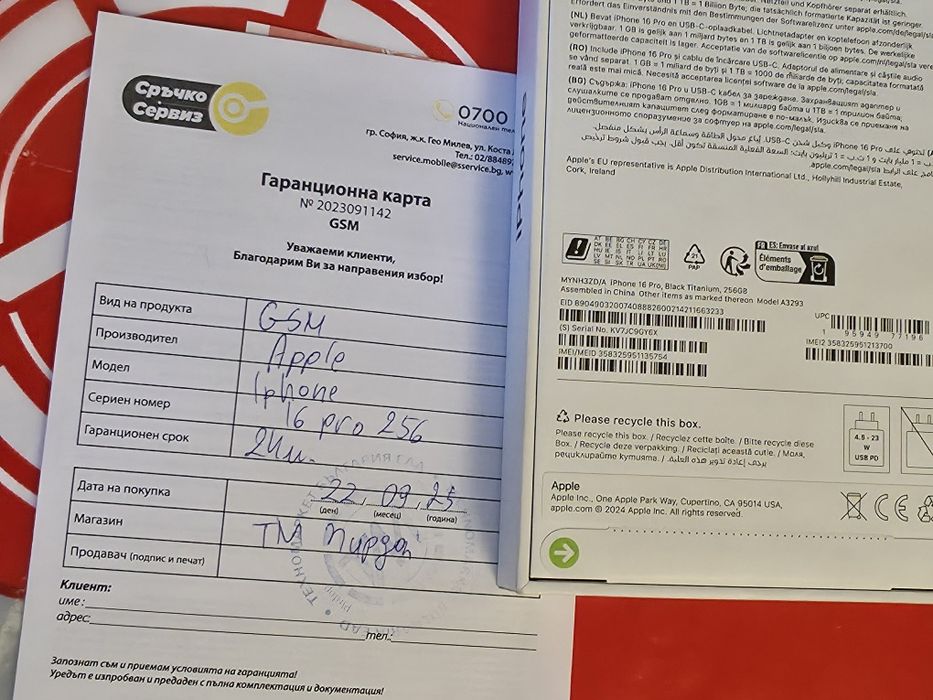 Сръчко
Сервиз
0700
Национален тел
гр. София, ж.к. Гео Милев, ул. Коста
Тел.: 02/88489
service.mobile@sservice.bg, w
Гаранционна карта
№ 2023091142
GSM
Уважаеми клиенти,
Благодарим Ви за направения избор!
Вид на продукта GSM
Производител Apple
Модел Iphone
Сериен номер 16 pro 256
Гаранционен срок 24м.
Дата на покупка 22.09.25
(ден) (месец) (година)
Магазин ТМ Пирдоп
Продавач (подпис и печат)
Клиент:
име:
адрес:
тел.:
Запознат съм и приемам условията на гаранцията!
Уредът е изпробван и предаден с пълна комплектация и документация!
(NL) Bevat iPhone 16 Pro en USB-C-oplaadkabel. Lichtnetadapter en koptelefoon afzonderlijk
verkrijgbaar. 1 GB is gelijk aan 1 miljard bytes en 1 TB is gelijk aan 1 biljoen bytes. De werkelijke
geformatteerde capaciteit is lager. Acceptatie van de softwarelicentie op apple.com/nl/legal/sla vere
(RO) Include iPhone 16 Pro și cablu de încărcare USB-C. Adaptorul de alimentare și căștile audio
se vând separat. 1 GB = 1 miliard de byți și 1 TB = 1000 de miliarde de byți; capacitatea formatată
reală este mai mică. Necesită acceptarea licenței software de la apple.com/legal/sla.
(BG) Съдържа: iPhone 16 Pro и USB-C кабел за зареждане. Захранващият адаптер и
слушалките се продават отделно. 1GB = 1 милиард байта и 1TB = 1 трилион байта;
действителният капацитет след форматиране е по-малък. Изисква се приемане на
лицензионното споразумение за софтуер на apple.com/legal/sla.
Apple's EU representative is Apple Distribution International Ltd., Hollyhill Industrial Estate,
Cork, Ireland
21
PAP
FR ES: Envase al azul
Éléments
d'emballage
MYNH3ZD/A iPhone 16 Pro, Black Titanium, 256GB
Assembled in China Other items as marked thereon Model A3293
EID 89049032007408882600214211663233
UPC
1 95949 77196
(S) Serial No. KV7JC9GY6X
IMEI/MEID 358325951135754
IMEI2 358325951213700
Please recycle this box.
Please recycle this box. / Recyclez cette boîte. / Bitte recycle diese
Box. / Recicle deze verpakking. / Reciclați această cutie. / Моля,
рециклирайте кутията.
4.5 - 23
W
USB PD
Apple
Apple Inc., One Apple Park Way, Cupertino, CA 95014 USA,
apple.com © 2024 Apple Inc. All rights reserved.